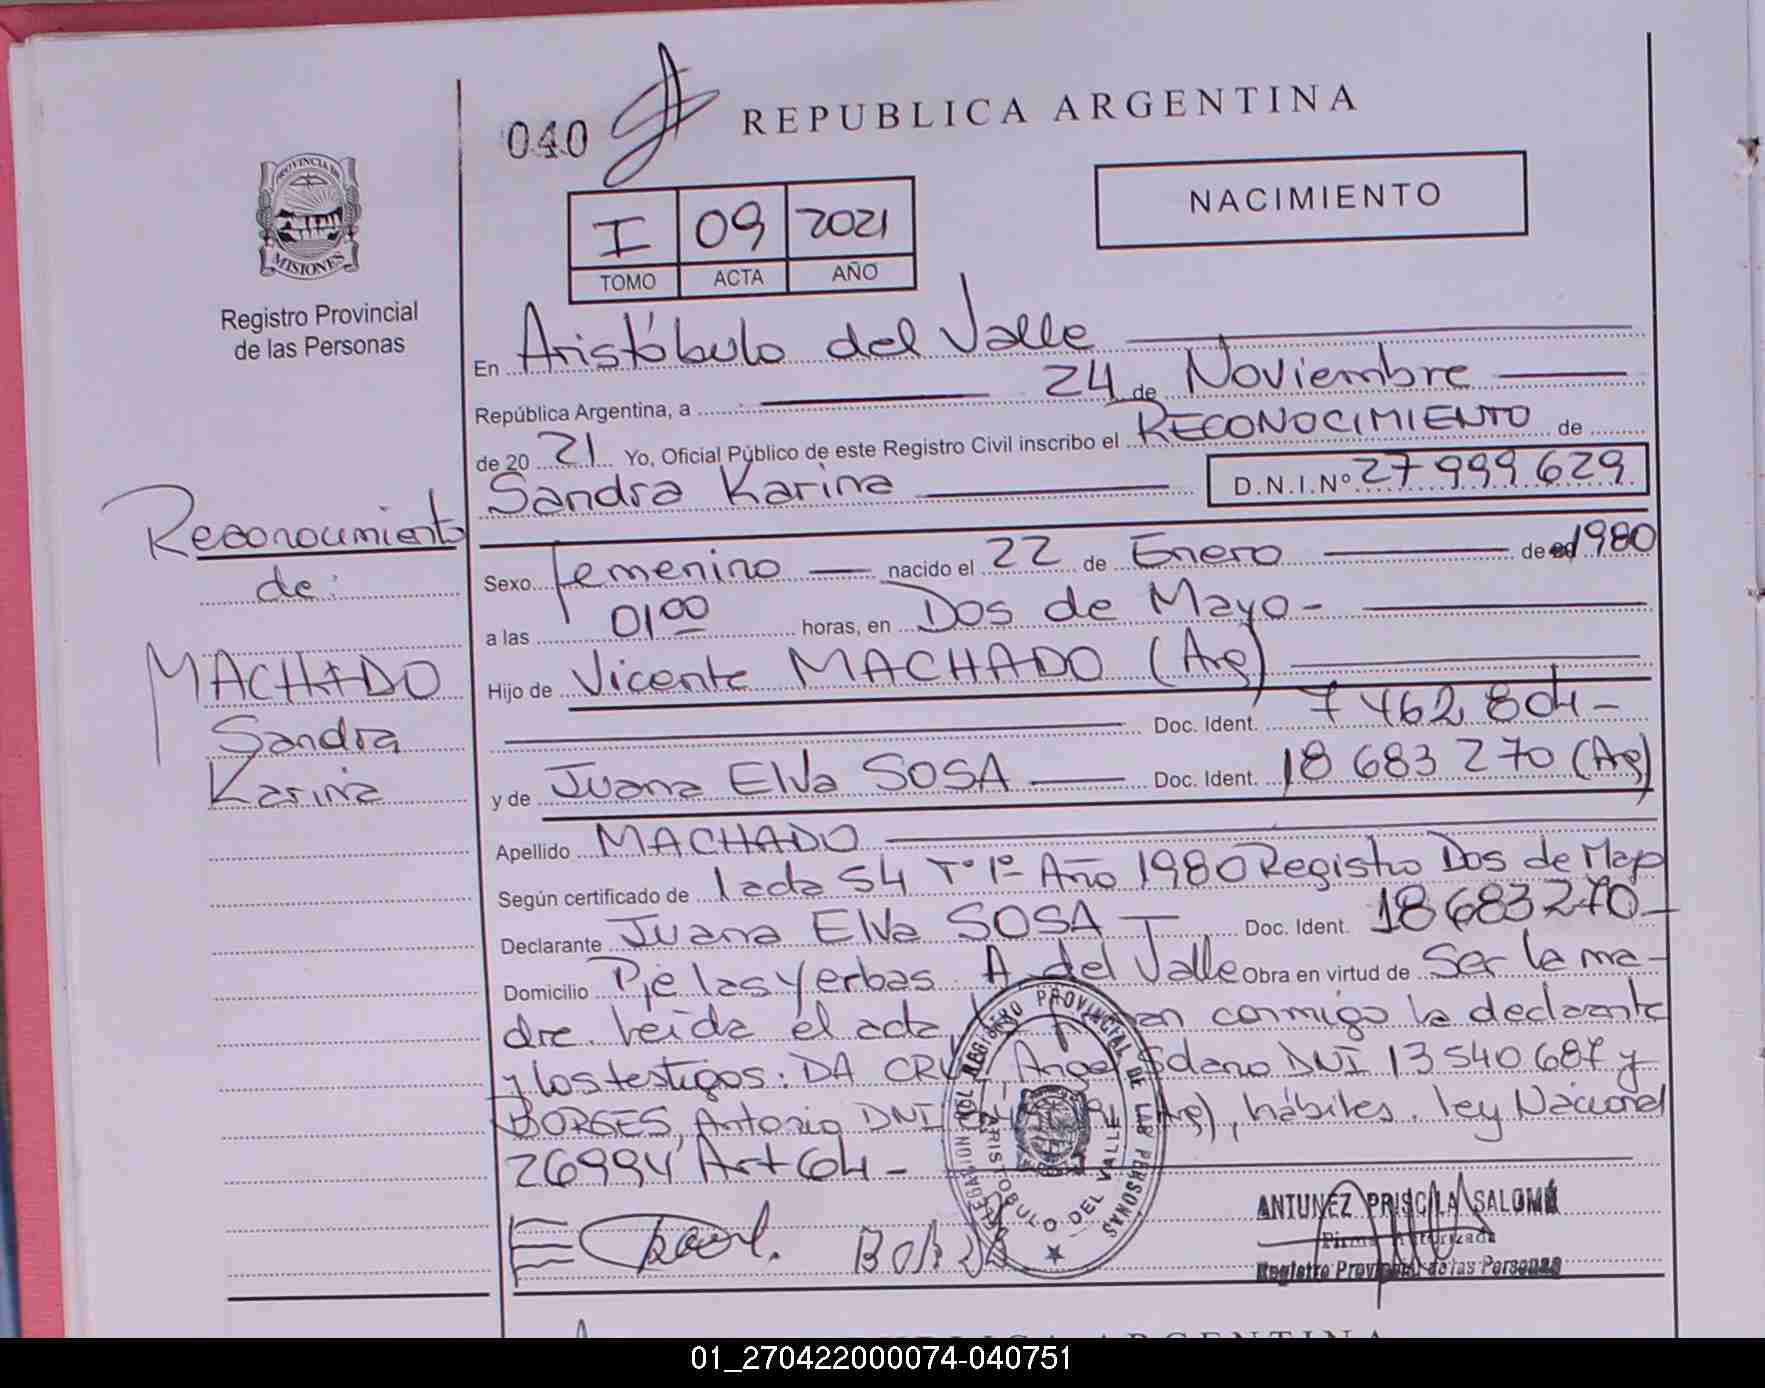 040
REPUBLICA ARGENTINA
NACIMIENTO
PROVINCIA DE
MISIONES
Registro Provincial
de las Personas
I 09 2021
TOMO ACTA AÑO
En Aristóbulo del Valle
República Argentina, a 24 de Noviembre
de 20 21 Yo, Oficial Público de este Registro Civil inscribo el RECONOCIMIENTO de
Sandra Karina D.N.I.Nº 27 999 629
Reconocimiento
de:
MACHADO
Sandra
Karina
Sexo femenino nacido el 22 de Enero de 1980
a las 01 00 horas, en Dos de Mayo -
Hijo de Vicente MACHADO (Arg)
Doc. Ident. 7 462 804 -
y de Juana Elva SOSA Doc. Ident. 18 683 270 (Arg)
Apellido MACHADO
Según certificado de acta 54 Tº 1º Año 1980 Registro Dos de Mayo
Declarante Juana Elva SOSA Doc. Ident. 18 683 270 -
Domicilio Pje las Yerbas. A. del Valle Obra en virtud de Ser la ma-
dre. leida el acta conmigo la declarante
y los testigos: DA CRU Angel Solano DNI 13 540 687 y
BORGES, Antonio DNI (Arg), hábiles. ley Nacional
26994 Art 64 -
REGISTRO PROVINCIAL DE LAS PERSONAS
DELEGACION
ARISTOBULO DEL VALLE
ANTUNEZ PRISCILA SALOMÉ
Firma Autorizada
Registro Provincial de las Personas
ARGENTINA
01_270422000074-040751